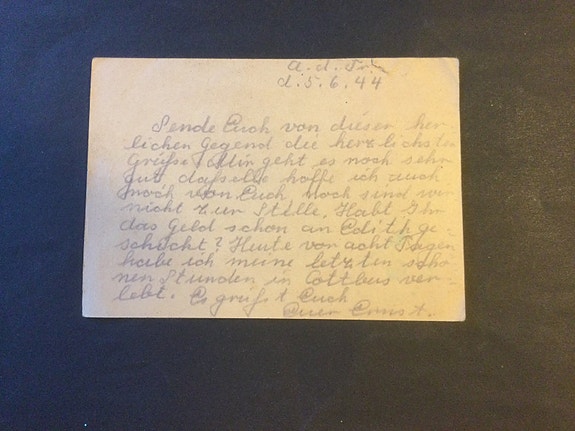 A. d. Fr.
d. 5. 6. 44
Sende Euch von dieser herr-
lichen Gegend die herzlichsten
Grüße! Mir geht es noch sehr
gut, dasselbe hoffe ich auch
noch von Euch noch sind wir
nicht zur Stelle. Habt Ihr
das Geld schon an Edith ge-
schickt? Heute vor acht Tagen
habe ich meine letzten schö-
nen Stunden in Cottbus ver-
lebt. Es grüßt Euch
Euer Ernst.